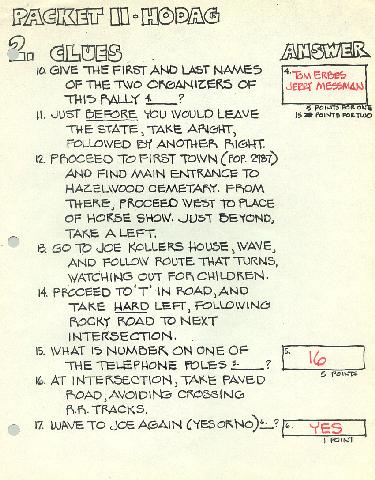 PACKET II - HODAG
2. CLUES
ANSWER
10. GIVE THE FIRST AND LAST NAMES
OF THE TWO ORGANIZERS OF
THIS RALLY 4. ?
4. TOM ERBES
JERRY MESSMAN
5 POINTS FOR ONE
15 POINTS FOR TWO
11. JUST BEFORE YOU WOULD LEAVE
THE STATE, TAKE A RIGHT,
FOLLOWED BY ANOTHER RIGHT.
12. PROCEED TO FIRST TOWN (POP. 2187)
AND FIND MAIN ENTRANCE TO
HAZELWOOD CEMETARY. FROM
THERE, PROCEED WEST TO PLACE
OF HORSE SHOW. JUST BEYOND,
TAKE A LEFT.
13. GO TO JOE KOLLERS HOUSE, WAVE,
AND FOLLOW ROUTE THAT TURNS,
WATCHING OUT FOR CHILDREN.
14. PROCEED TO 'T' IN ROAD, AND
TAKE HARD LEFT, FOLLOWING
ROCKY ROAD TO NEXT
INTERSECTION.
15. WHAT IS NUMBER ON ONE OF
THE TELEPHONE POLES 5. ?
5. 16
5 POINTS
16. AT INTERSECTION, TAKE PAVED
ROAD, AVOIDING CROSSING
R.R. TRACKS.
17. WAVE TO JOE AGAIN (YES OR NO) 6. ?
6. YES
1 POINT